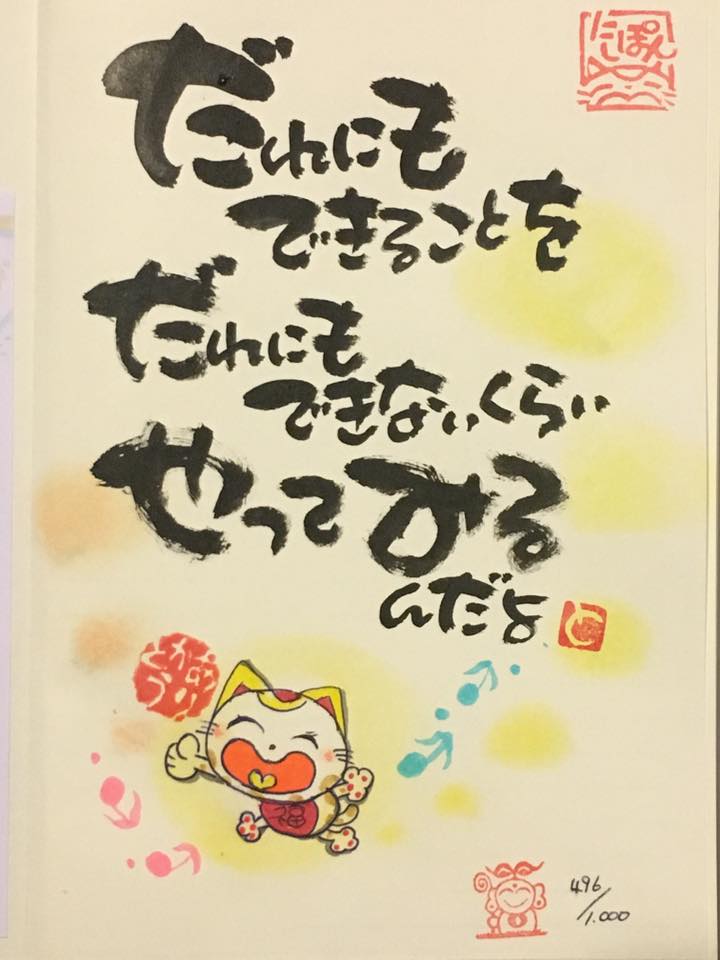 にしぽん
だれにも
できることを
だれにも
できないくらい
やってみる
んだよ
福
496/1.000